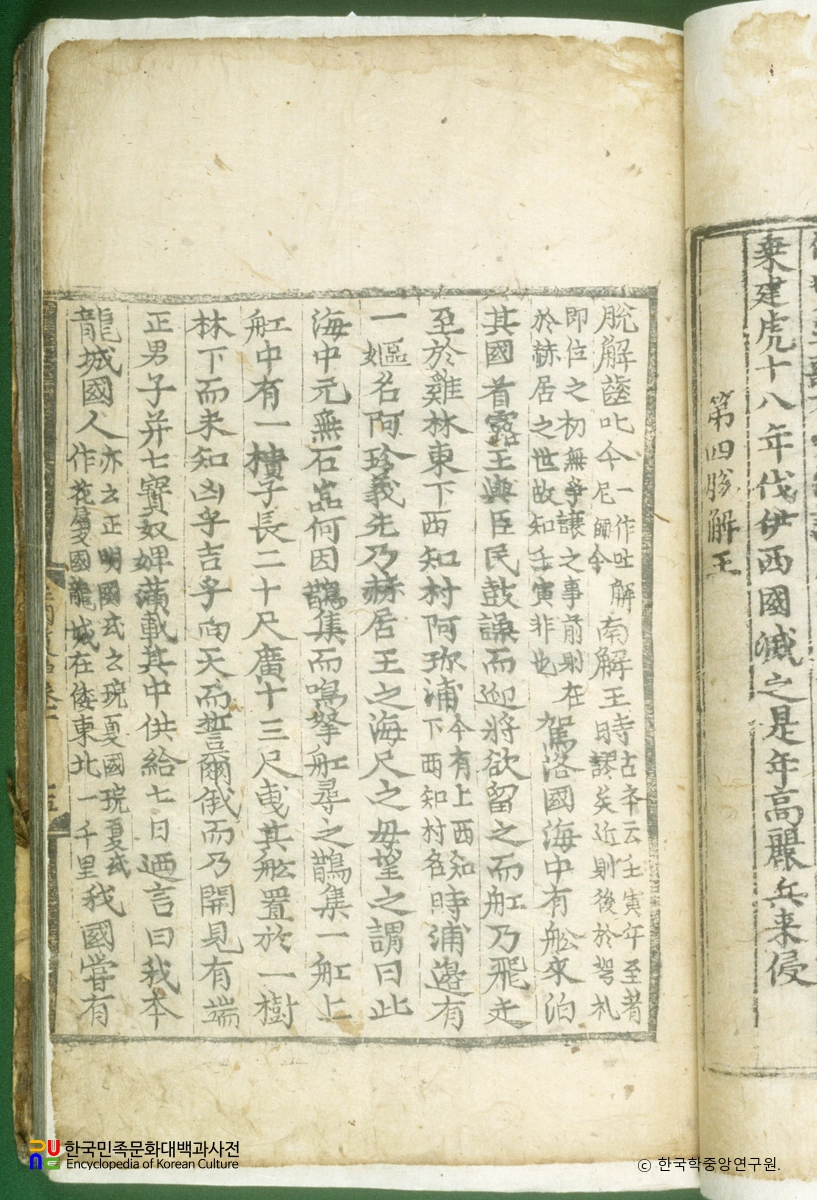 乗建虎十八年伐伊西國滅之是年高麗兵来侵
第四脫解王
脫解齒叱今一作吐解尼師今南解王時古本云壬寅年至者謬矣近則後於弩礼
即位之初無爭讓之事前則在於赫居之世故知壬寅非也駕洛國海中有舩來泊
其國首露王與臣民鼓譟而迎將欲留之而舡乃飛走
至於雞林東下西知村阿珎浦今有上西知下西知村名時浦邊有
一嫗名阿珎義先乃赫居王之海尺之母望之謂曰此
海中元無石嵓何因鵲集而鳴拏舡尋之鵲集一舡上
舡中有一樻子長二十尺廣十三尺曵其舩置於一樹
林下而未知凶乎吉乎向天而誓爾俄而乃開見有端
正男子并七寶奴婢滿載其中供給七日迺言曰我本
龍城國人亦云正明國或云琓夏國琓夏或作花厦國龍城在倭東北一千里我國嘗有
한국민족문화대백과사전
Encyclopedia of Korean Culture
© 한국학중앙연구원.